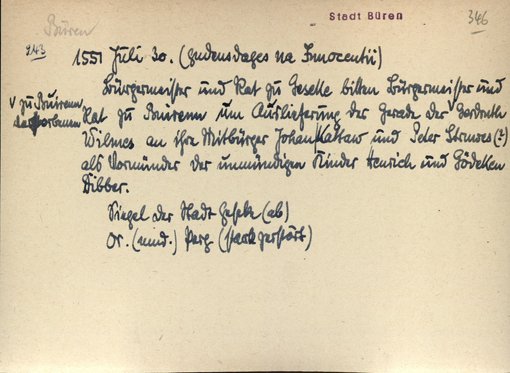 Stadt Büren
346
Büren
243
1551 Juli 30. (gudensdages na Innocentii)
Bürgermeister und Rat zu Geseke bitten Bürgermeister und
v zu Buirenn
verstorbenen
Rat zu Buirenn um Auslieferung der Gerade der Gerdruth
Wilmes an ihre Mitbürger Johan Kaltaw und Peter Struves (?)
als Vormünder der unmündigen Kinder Henrich und Gödekken
Dibber.
Siegel der Stadt Geseke (ab)
Or. (nied.) Perg (stark zerstört)